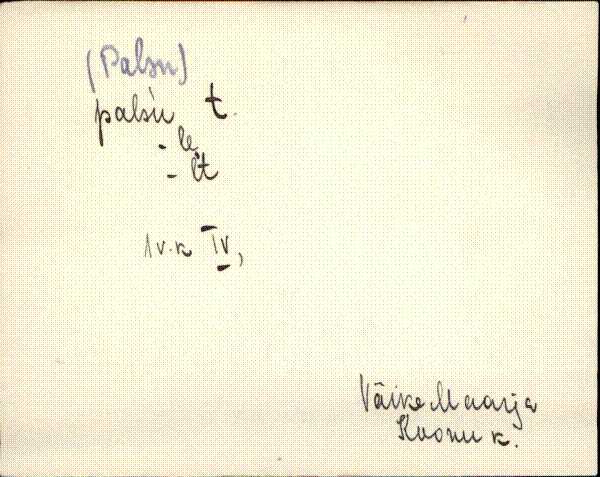 (Palsu)
palsu t.
- le,
- lt
1 v.k IV,
Väike-Maarja
Koonu k.